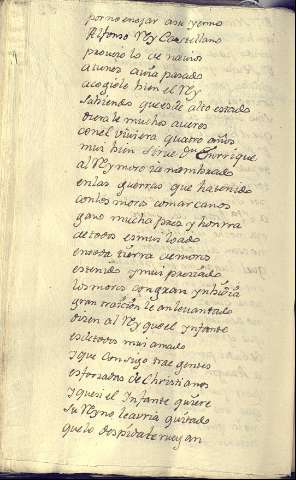 por no enojar a su yerno
Alfonso Rey Castellano
proueio lo de nauios
a tunez auia pasado
acogiole bien el Rey
sabiendo que es de alto estado
dierale muchos aueres
con el viviera quatro años
mui bien sirue don Enrrique
al Rey moro ia nombrado
en las guerras que ha tenido
con los moros comarcanos
gano mucha prez y honrra
de todos es mui loado
en toda tierra de moros
es tenido y mui preciado
los moros con gran ynbidia
gran traicion le an leuantado
dizen al Rey que el ynfante
es de todos mui amado
y que consigo trae gentes
esforzadas de Christianos
y que si el Infante quiere
su Reyno le auria quitado
que lo despida te ruegan